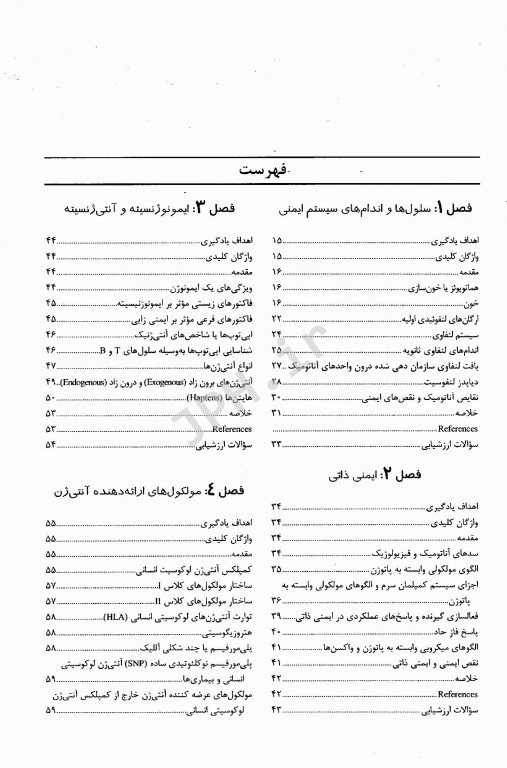 فهرست
فصل ۱: سلول‌ها و اندام‌های سیستم ایمنی
اهداف یادگیری ۱۵
واژگان کلیدی ۱۵
مقدمه ۱۶
هماتوپوئز یا خون‌سازی ۱۶
خون ۱۶
ارگان‌های لنفوئیدی اولیه ۲۲
سیستم لنفاوی ۲۴
اندام‌های لنفاوی ثانویه ۲۵
بافت لنفاوی سازمان دهی شده درون واحدهای آناتومیک ۲۷
دیاپدز لنفوسیت ۲۸
نقایص آناتومیک و نقص‌های ایمنی ۳۰
خلاصه ۳۱
References
سؤالات ارزشیابی ۳۳
فصل ۲: ایمنی ذاتی
اهداف یادگیری ۳۴
واژگان کلیدی ۳۴
مقدمه ۳۴
سدهای آناتومیک و فیزیولوژیک ۳۴
الگوی مولکولی وابسته به پاتوژن ۳۵
اجزای سیستم کمپلمان سرم و الگوهای مولکولی وابسته به
پاتوژن ۳۶
فعالسازی گیرنده و پاسخ‌های عملکردی در ایمنی ذاتی ۳۹
پاسخ فاز حاد ۴۰
الگوهای میکروبی وابسته به پاتوژن و واکسن‌ها ۴۱
نقص ایمنی و ایمنی ذاتی ۴۱
خلاصه ۴۲
References ۴۲
سؤالات ارزشیابی ۴۳
فصل ۳: ایمونوژنسیته و آنتی‌ژنسیته
اهداف یادگیری ۴۴
واژگان کلیدی ۴۴
مقدمه ۴۴
ویژگی‌های یک ایمونوژن ۴۴
فاکتورهای زیستی مؤثر بر ایمونوژنیسیته ۴۵
فاکتورهای فرعی مؤثر بر ایمنی زایی ۴۵
اپی‌توپ‌ها یا شاخص‌های آنتی‌ژنیک ۴۶
شناسایی اپی‌توپ‌ها به‌وسیله سلول‌های T و B ۴۶
انواع آنتی‌ژن‌ها ۴۷
آنتی‌ژن‌های برون زاد (Exogenous) و درون زاد (Endogenous) ۴۹
هاپتن‌ها (Haptens) ۵۰
خلاصه ۵۳
References ۵۳
سؤالات ارزشیابی ۵۴
فصل ۴: مولکول‌های ارائه‌دهنده آنتی‌ژن
اهداف یادگیری ۵۵
واژگان کلیدی ۵۵
مقدمه ۵۵
کمپلکس آنتی‌ژن لوکوسیت انسانی ۵۵
ساختار مولکول‌های کلاس I ۵۷
ساختار مولکول‌های کلاس II ۵۷
توارث آنتی‌ژن‌های لوکوسیتی انسانی (HLA) ۵۸
هتروزیگوسیتی ۵۸
پلی‌مورفیسم یا چند شکلی آللیک ۵۸
پلی‌مورفیسم نوکلئوتیدی ساده (SNP) آنتی‌ژن لوکوسیتی
انسانی و بیماری‌ها ۵۹
مولکول‌های عرضه کننده آنتی‌ژن خارج از کمپلکس آنتی‌ژن
لوکوسیتی انسانی ۵۹